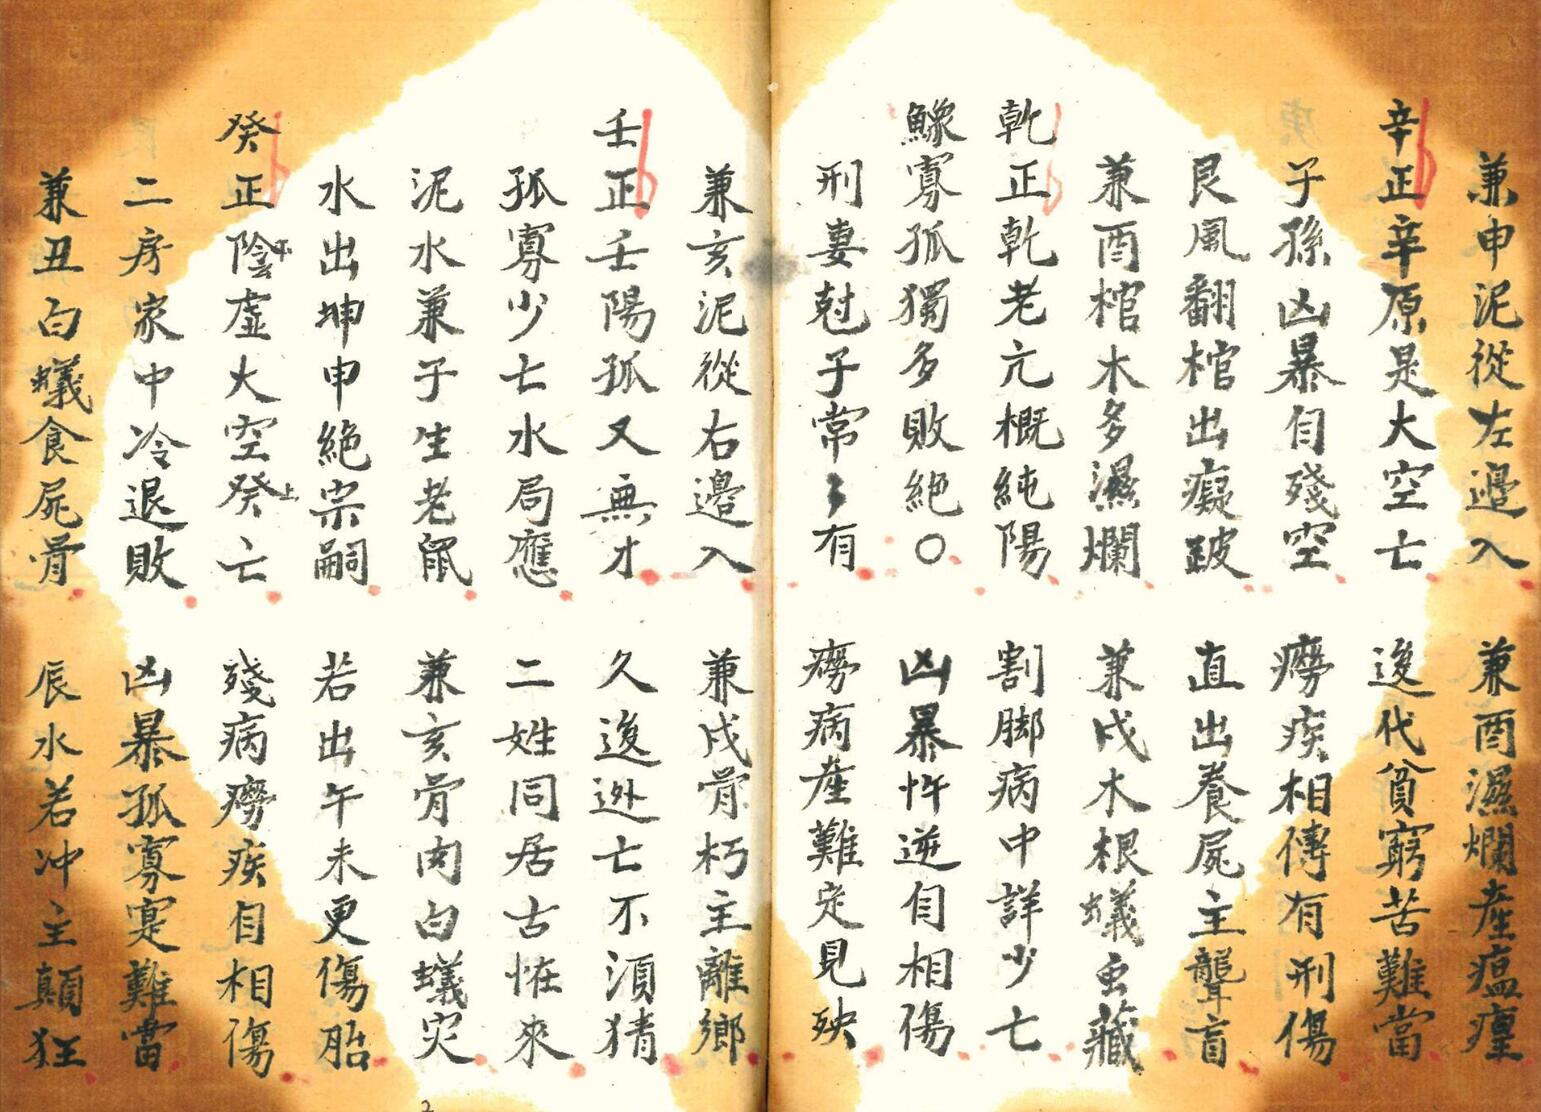 兼申泥從左邉入　兼酉濕爛産瘟瘽
辛正辛原是大空亡　後代貧窮苦難當
子孫凶暴自殘空　癆疾相傳有刑傷
艮風翻棺出癡跛　直出養屍主聾盲
兼酉棺木多濕爛　兼戌木根蟻虫藏
乾正乾老亢概純陽　割脚病中詳少亡
鰥寡孤獨多敗絕〇　凶暴忤逆自相傷
刑妻尅子常〻有　癆病産難定見殃
兼亥泥從右邉入　兼戌骨朽主離鄉
壬正壬陽孤又無才　久後逃亡不須猜
孤寡少亡水局應　二姓同居古怪來
泥水兼子生老鼠　兼亥骨肉白蟻灾
水出坤申絕宗嗣　若出午未更傷胎
癸正陰下虛大空癸上亡　殘病癆疾自相傷
二房家中冷退敗　凶暴孤寡寔難當
兼丑白蟻食屍骨　辰水若冲主顛狂
2